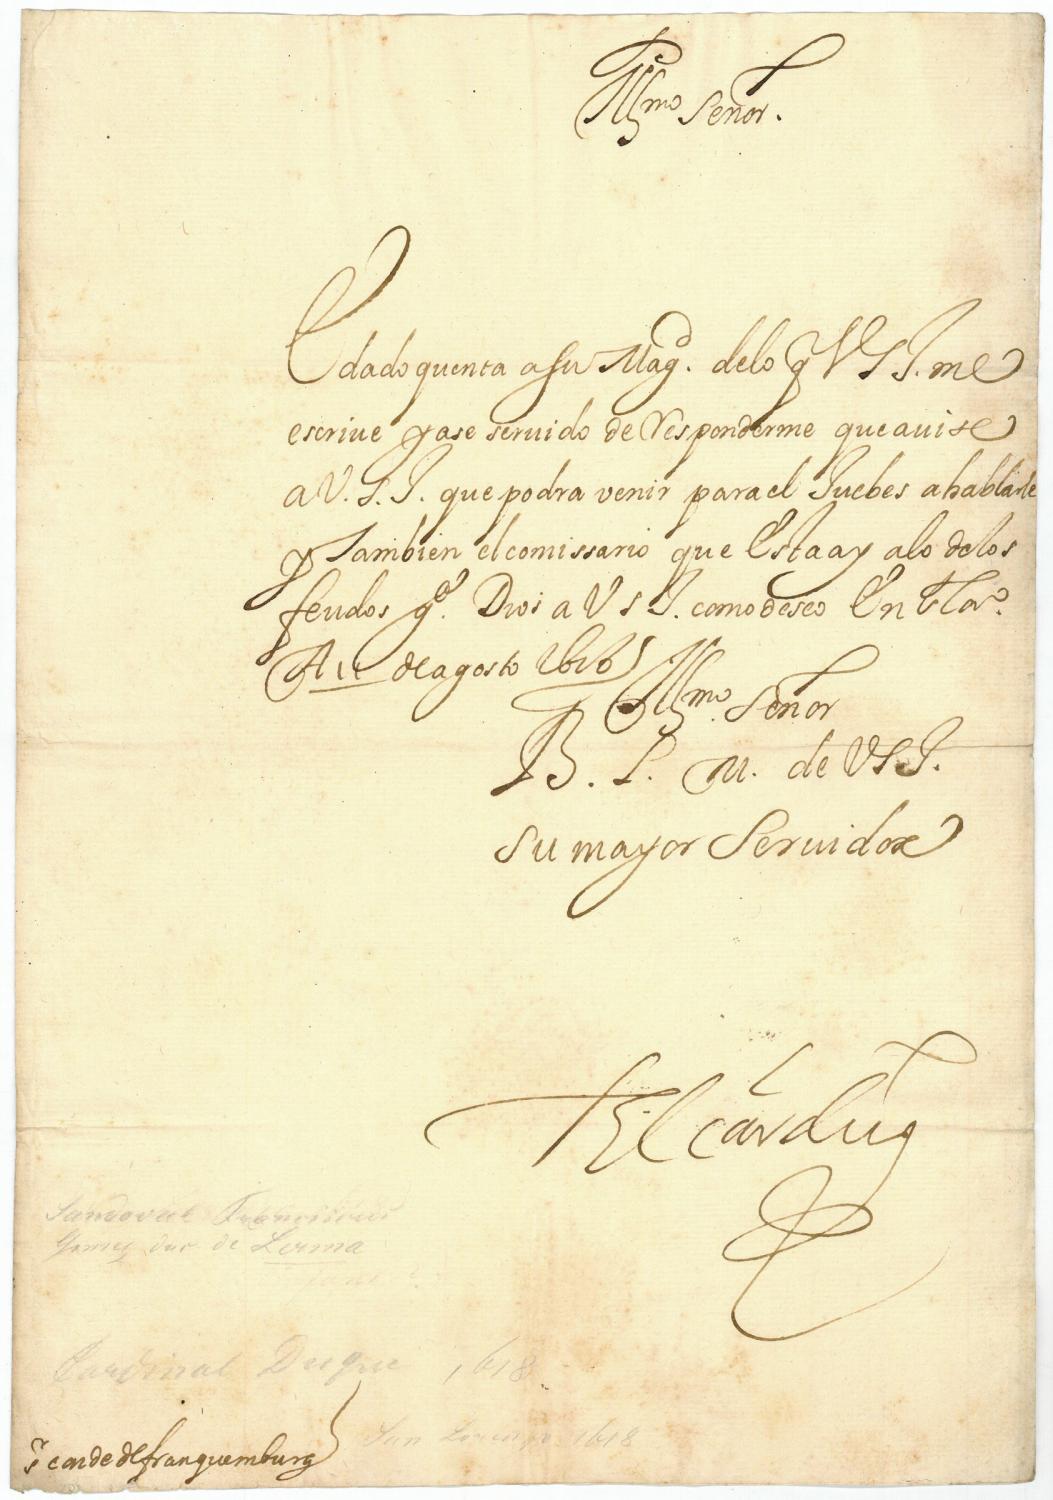 Illmo Señor.
E dado quenta a su Magd. delo q V S I. me
escriue y ase seruido de Responderme que auise
a V. S. I. que podra venir para el Juebes a hablarle
y Tambien el comissario que Esta ay alo de los
feudos gde. Dios a V S I. como deseo En
A de agosto
Illmo. Señor
B. L. M. de V S I.
su mayor Seruidor
El carduq
Sandoval Franciscus
Gomez duc de Lerma
Cardinal Duque 1618
San Lorenzo 1618
sr conde de franquemburg